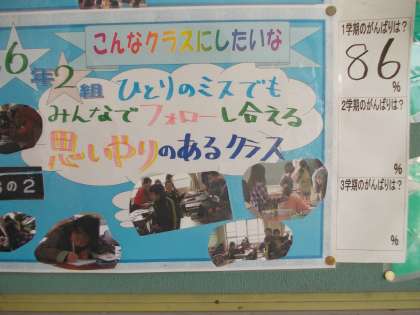 こんなクラスにしたいな
6年2組
ひとりのミスでも
みんなでフォローし合える
思いやりのあるクラス
の2
1学期のがんばりは?
86
%
2学期のがんばりは?
%
3学期のがんばりは?
%